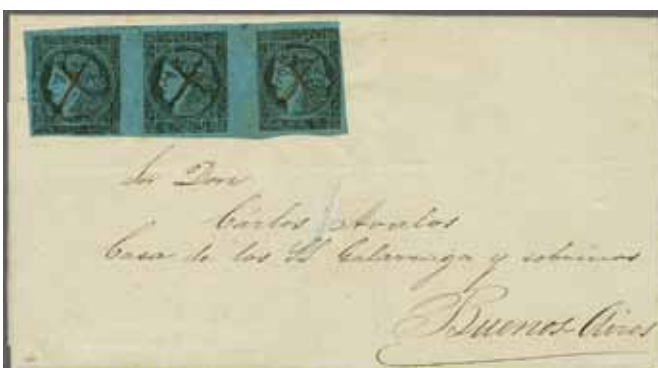 Sor Don
Carlos Avalos
Casa de los SS y sobrinos
Buenos Aires